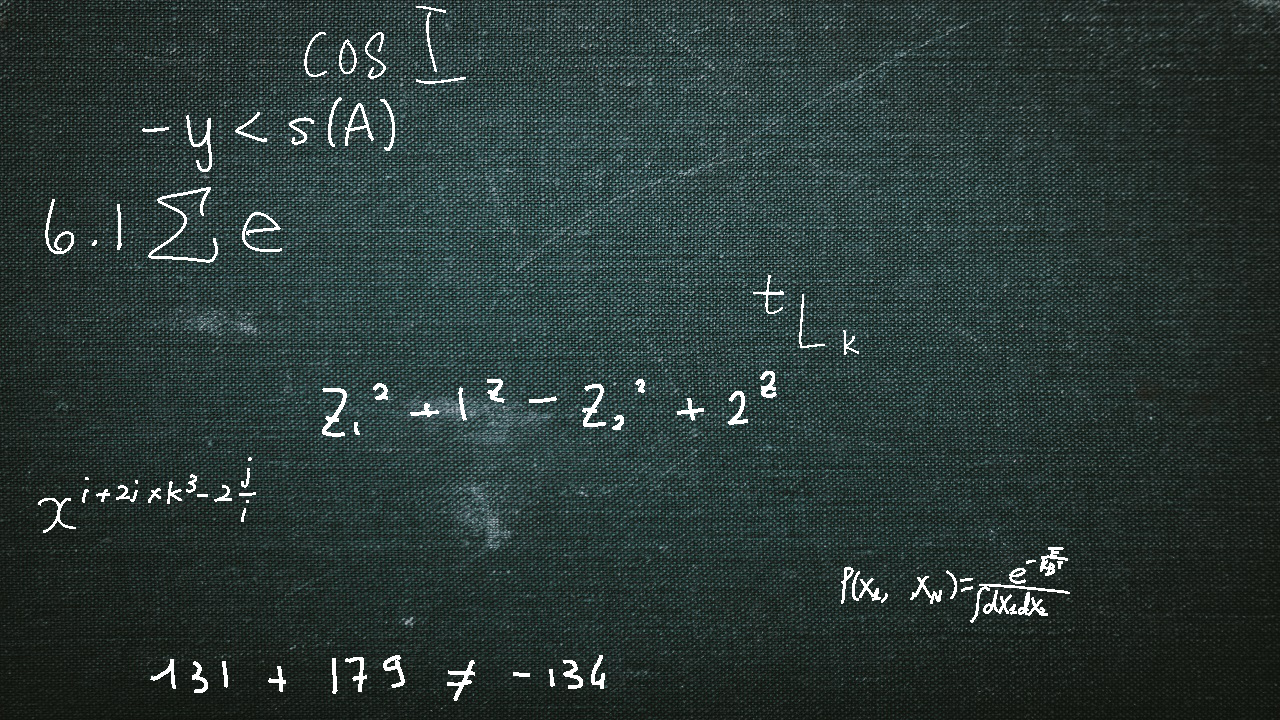 cos I
-y < s(A)
6.1 ∑ e
t L_k
z_1^2 + 1^z - z_2^2 + 2^z
x^{i+2j×k^3-2\frac{j}{i}}
P(x_1, x_N) = \frac{e^{-\frac{E}{k_B T}}}{∫dx_1dx_2}
131 + 179 ≠ -134